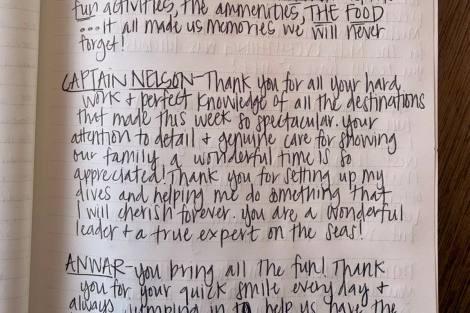 fun activities, the ammenities, THE FOOD
...it all made us memories we will never
forget!
CAPTAIN NELSON- Thank you for all your hard
work + perfect knowledge of all the destinations
that made this week so spectacular. Your
attention to detail & genuine care for showing
our family a wonderful time is so
appreciated! Thank you for setting up my
dives and helping me do something that
I will cherish forever. You are a wonderful
leader + a true expert on the seas!
ANWAR- you bring all the fun! Thank
you for your quick smile everyday &
always jumping in to help us have the